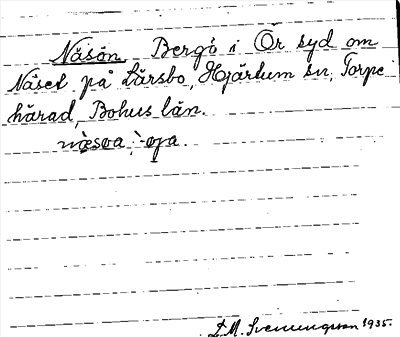 Näsön, Bergö i Ör syd om
Näset på Lärsbo, Hjärtum sn, Torpe
härad, Bohus län.
næsɷa, -øja.
L.M. Svenungsson 1935.